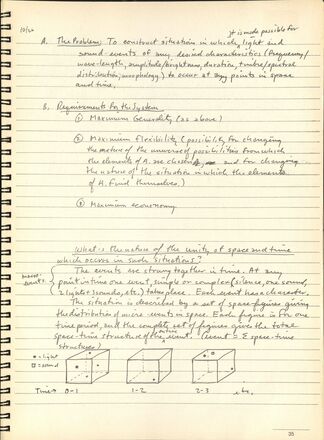 10/20
it is made possible for
A. The Problem: To construct situation in which light and
sound events of any desired characteristics (frequency/
wave-length, amplitude/brightness, duration, timbre/spectral
distribution, morphology) to occur at any points in space
and time.
B. Requirements for the System
① Maximum Generality (as above)
② Maximum Flexibility (possibility for changing
the nature of the universe of possibilities from which
the elements of A. are chosen, and for changing
the nature of the situation in which the elements
of A. find themselves.)
③ Maximum economy
What is the nature of the unity of space and time
which occurs in such situations?
The events are strung together in time. At any
point in time one event, simple or complex (silence, one sound,
2 lights + 3 sounds, etc.) takes place. Each event has a character.
The situation is described by a set of space-figures giving
the distribution of micro-events in space. Each figure is for one
time period, and the complete set of figures gives the total
space-time structure of the event. (event = Σ space-time
structures)
• = light
= sound
Time → 0-1 1-2 2-3 etc.
35